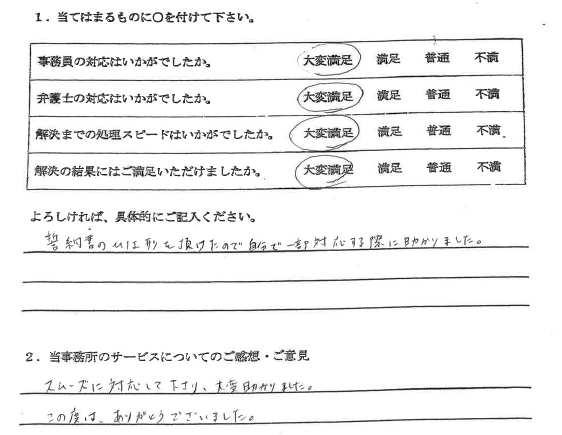 1．当てはまるものに○を付けて下さい。
事務員の対応はいかがでしたか。 大変満足 満足 普通 不満
弁護士の対応はいかがでしたか。 大変満足 満足 普通 不満
解決までの処理スピードはいかがでしたか。 大変満足 満足 普通 不満
解決の結果にはご満足いただけましたか。 大変満足 満足 普通 不満
よろしければ、具体的にご記入ください。
誓約書のひな形を頂けたので自分で一部対応する際に助かりました。
2．当事務所のサービスについてのご感想・ご意見
スムーズに対応して下さり、大変助かりました。
この度は、ありがとうございました。